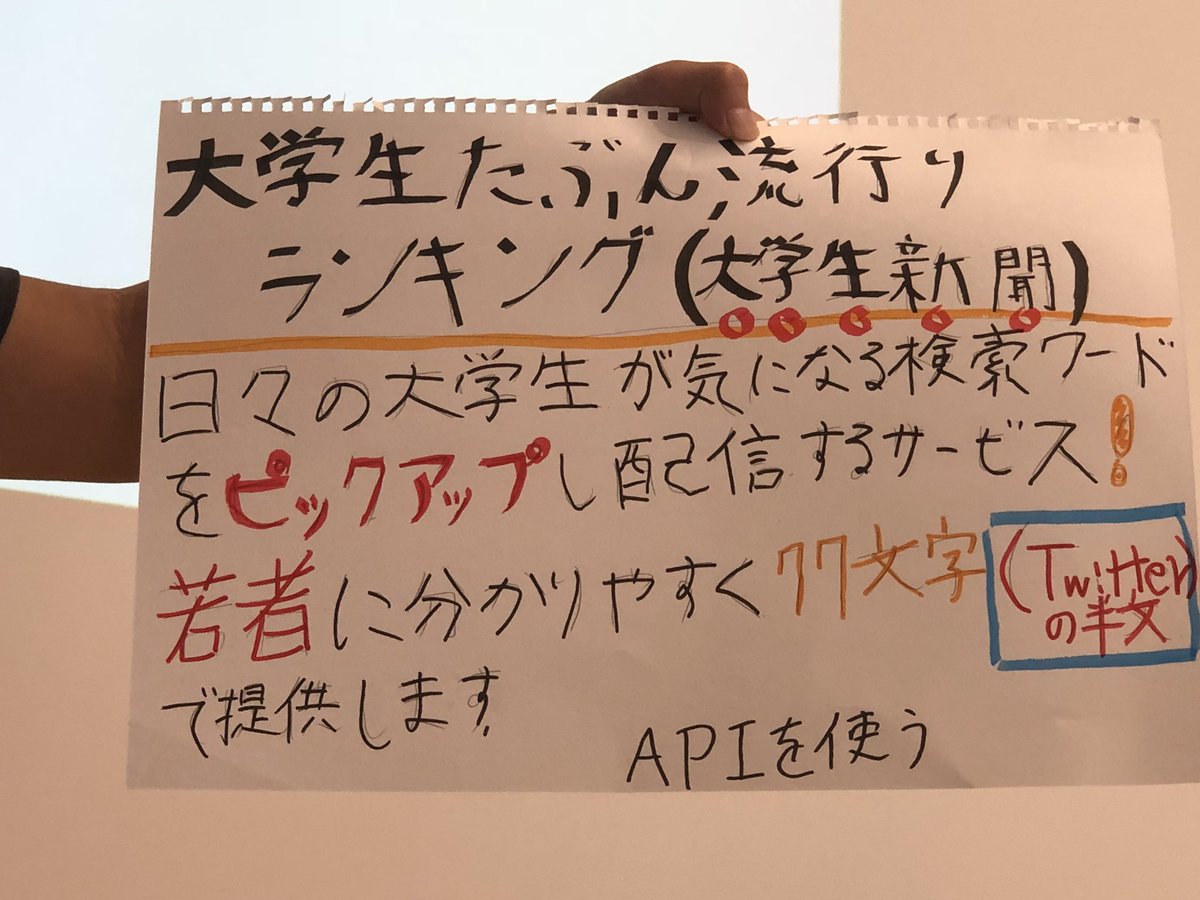 大学生たぶん流行り
ランキング(大学生新聞)
日々の大学生が気になる検索ワード
をピックアップし配信するサービス!
若者に分かりやすく77文字(Twitter
の半文)
で提供します
APIを使う